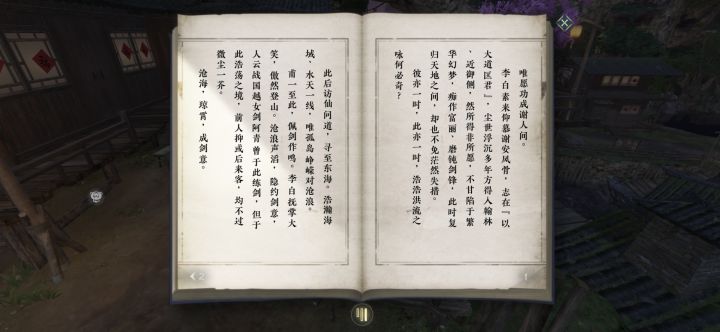 唯愿功成谢人间。
李白素来仰慕谢安风骨，志在『以
大道匡君』，尘世浮沉多年方得入翰林
、近御侧，然所得非所愿，不甘陷于繁
华幻梦，痴作富丽，磨钝剑锋，此时复
归天地之间，却也不免茫然失措。
彼亦一时，此亦一时，浩浩洪流之
咏何必奇？
1
此后访仙问道，寻至东海。浩瀚海
域、水天一线，唯孤岛峥嵘对沧浪。
甫一至此，佩剑作鸣。李白抚掌大
笑，傲然登山。沧浪声滔，隐约剑意，
人云战国越女剑阿青曾于此练剑，但于
此浩荡之境，前人抑或后来客，均不过
微尘一芥。
沧海，琼霄，成剑意。
2